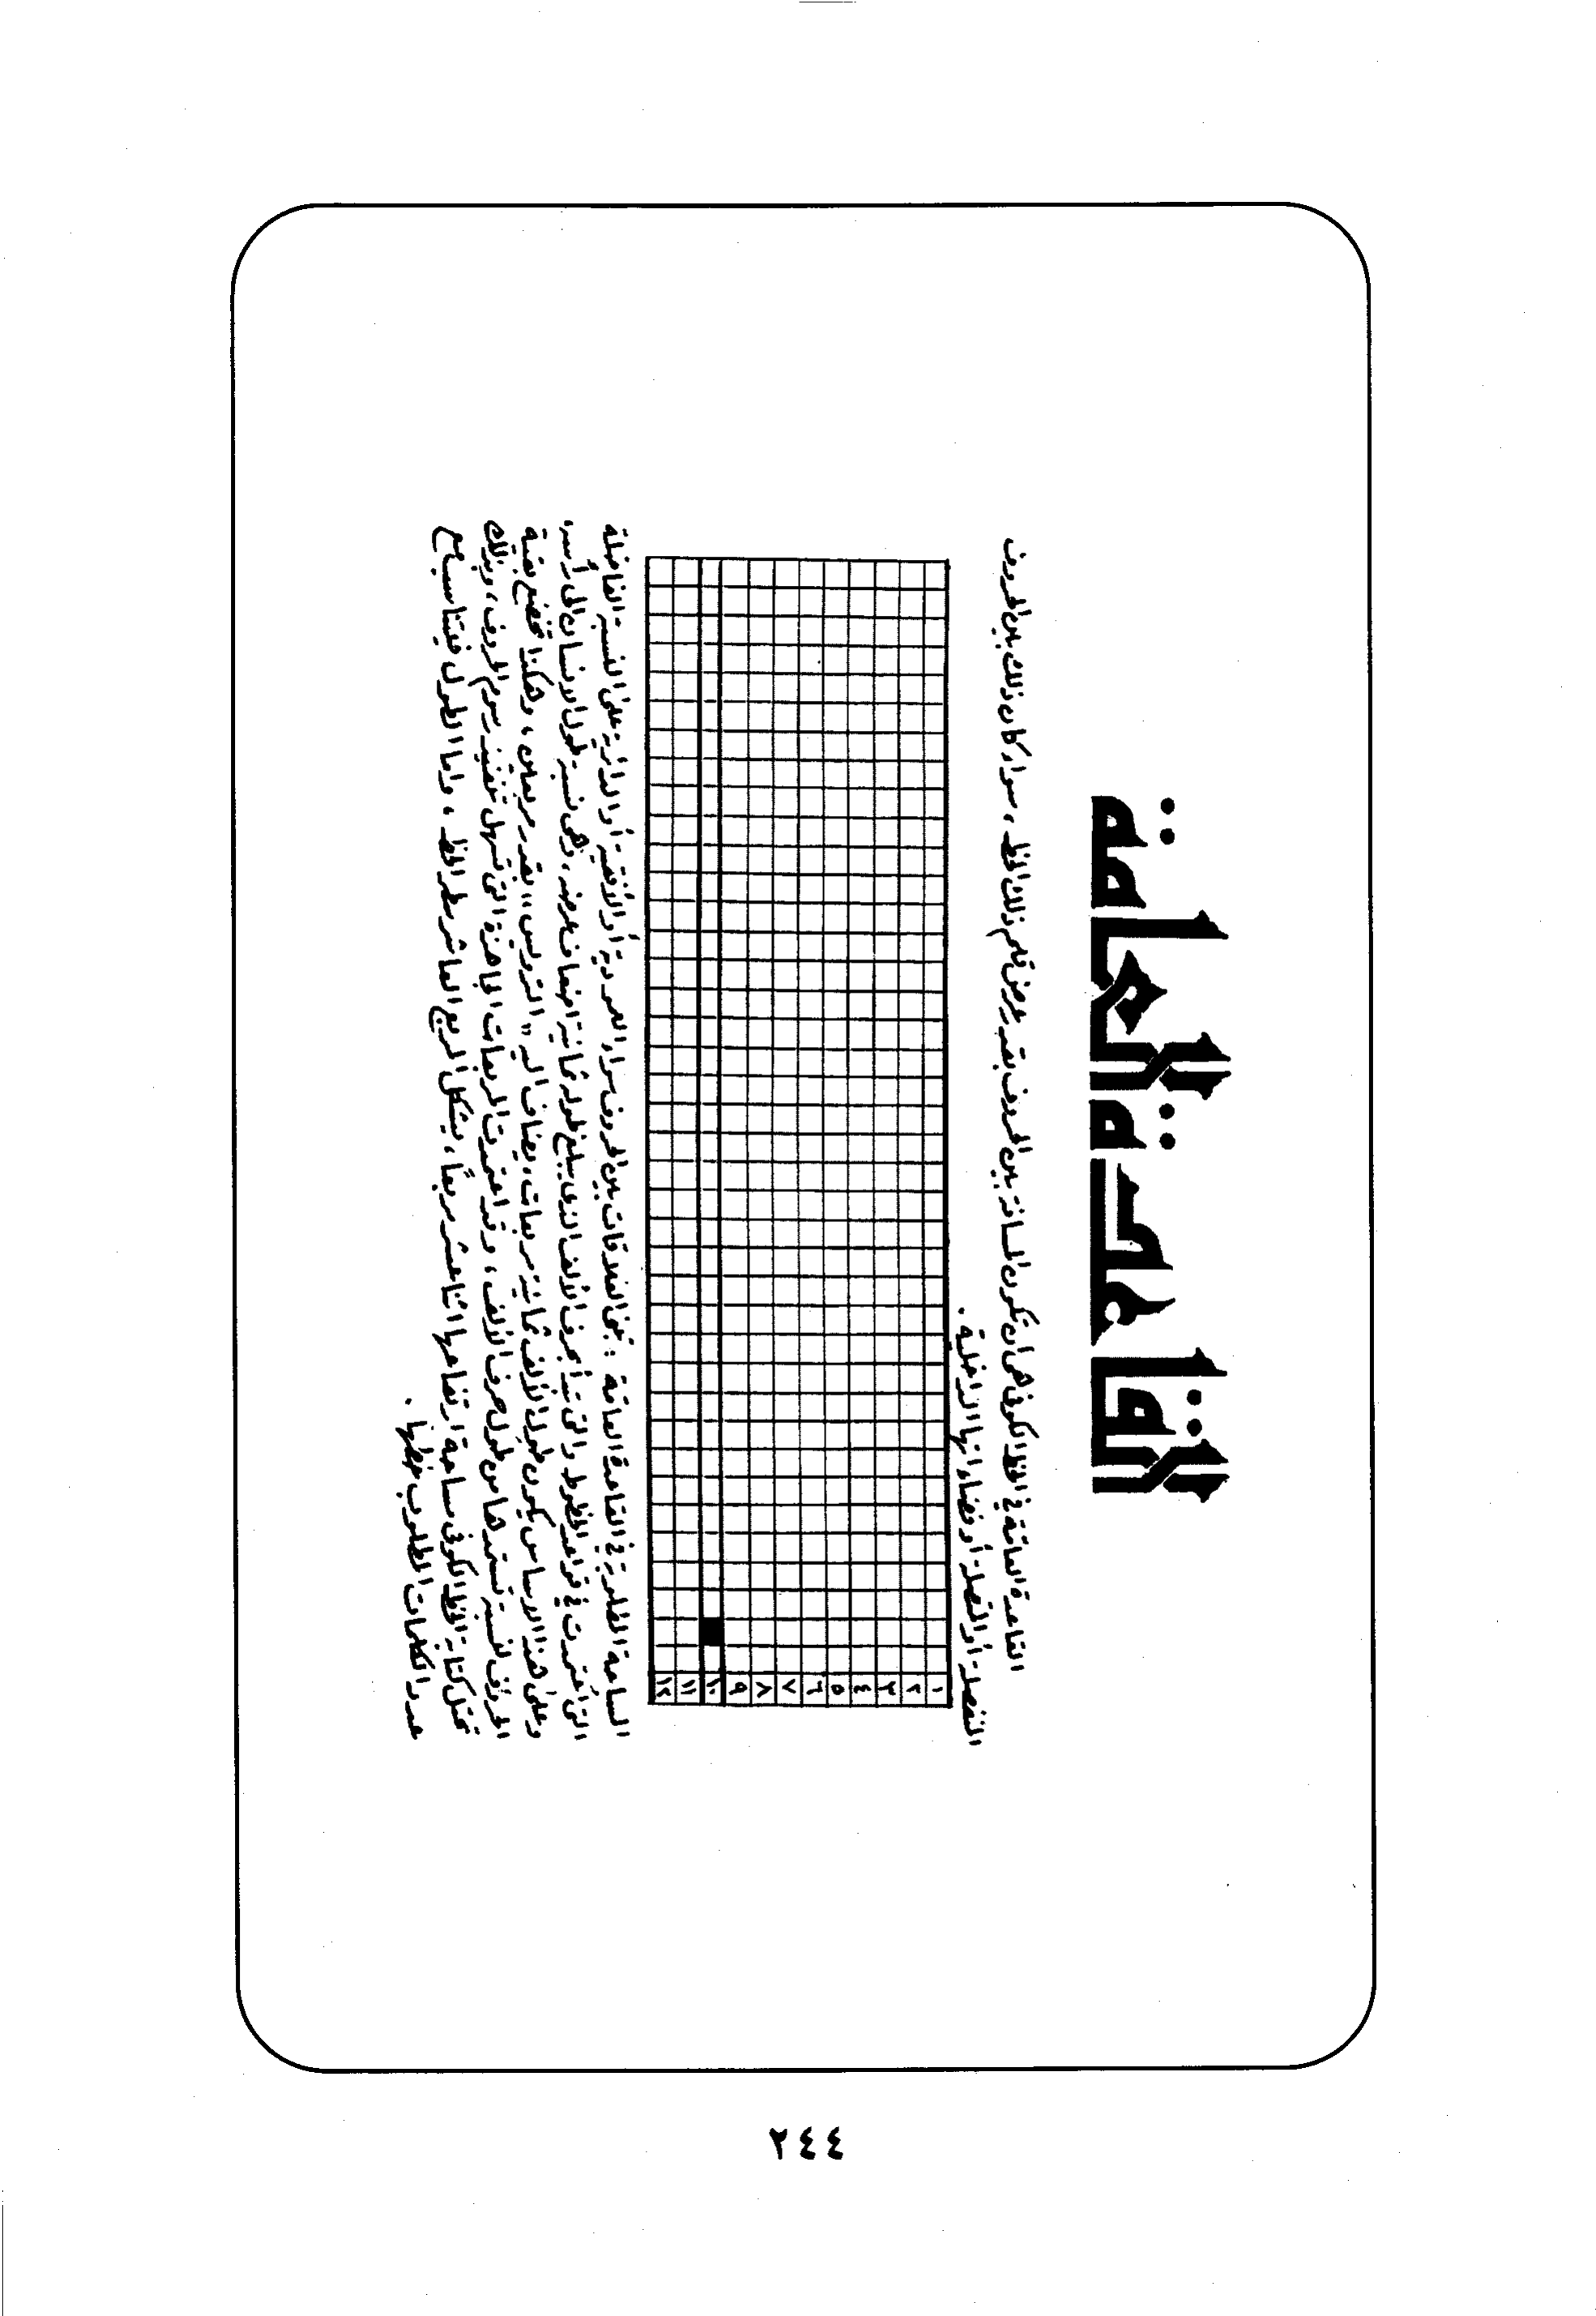 القاعدة العامة
القاعدة العامة في الخط الكوفي هي ان تكون المسافة بين الحروف بقدر عرض قلم ذلك الخط ، سواء كان ذلك بين الحروف
المنفصلة أو المتصلة أو فضاءاتها الداخلية .
١
٢
٣
٤
٥
٦
٧
٨
٩
١٠
١١
١٢
المساحة المطلوبة في القاعدة العامة : بين الحروف سواء العمودية أو الأفقية أو الدائرية على النسبة الفاضلة
التي أعتمدت في قواعد الخطوط والتي تبدأ بحرف الألف الذي يبلغ طوله ثمانية اضعاف عرضه ، وهي نسبة طول الانسان الى رأسه ،
وعلى هذا الاساس يكون طول الألف ثمانية مربعات ، يضاف اليه « الترويس » بقدر مربعين ، وهكذا تخضع بقية
الحروف لنسبة تستمدها من طول حرف الألف ، وقد اعتمدت المربعات الجاهزة التي تسهل تنفيذ رسوم الحروف ، وبذلك
تمثل كتابة الخط الكوفي مساحة ارتفاعها اثنا عشر مربعاً ، يشكل المربع العاشر سطر الخط ، واما الطول فيتناسب مع
عدد الكلمات المطلوب خطها .
٢٤٤